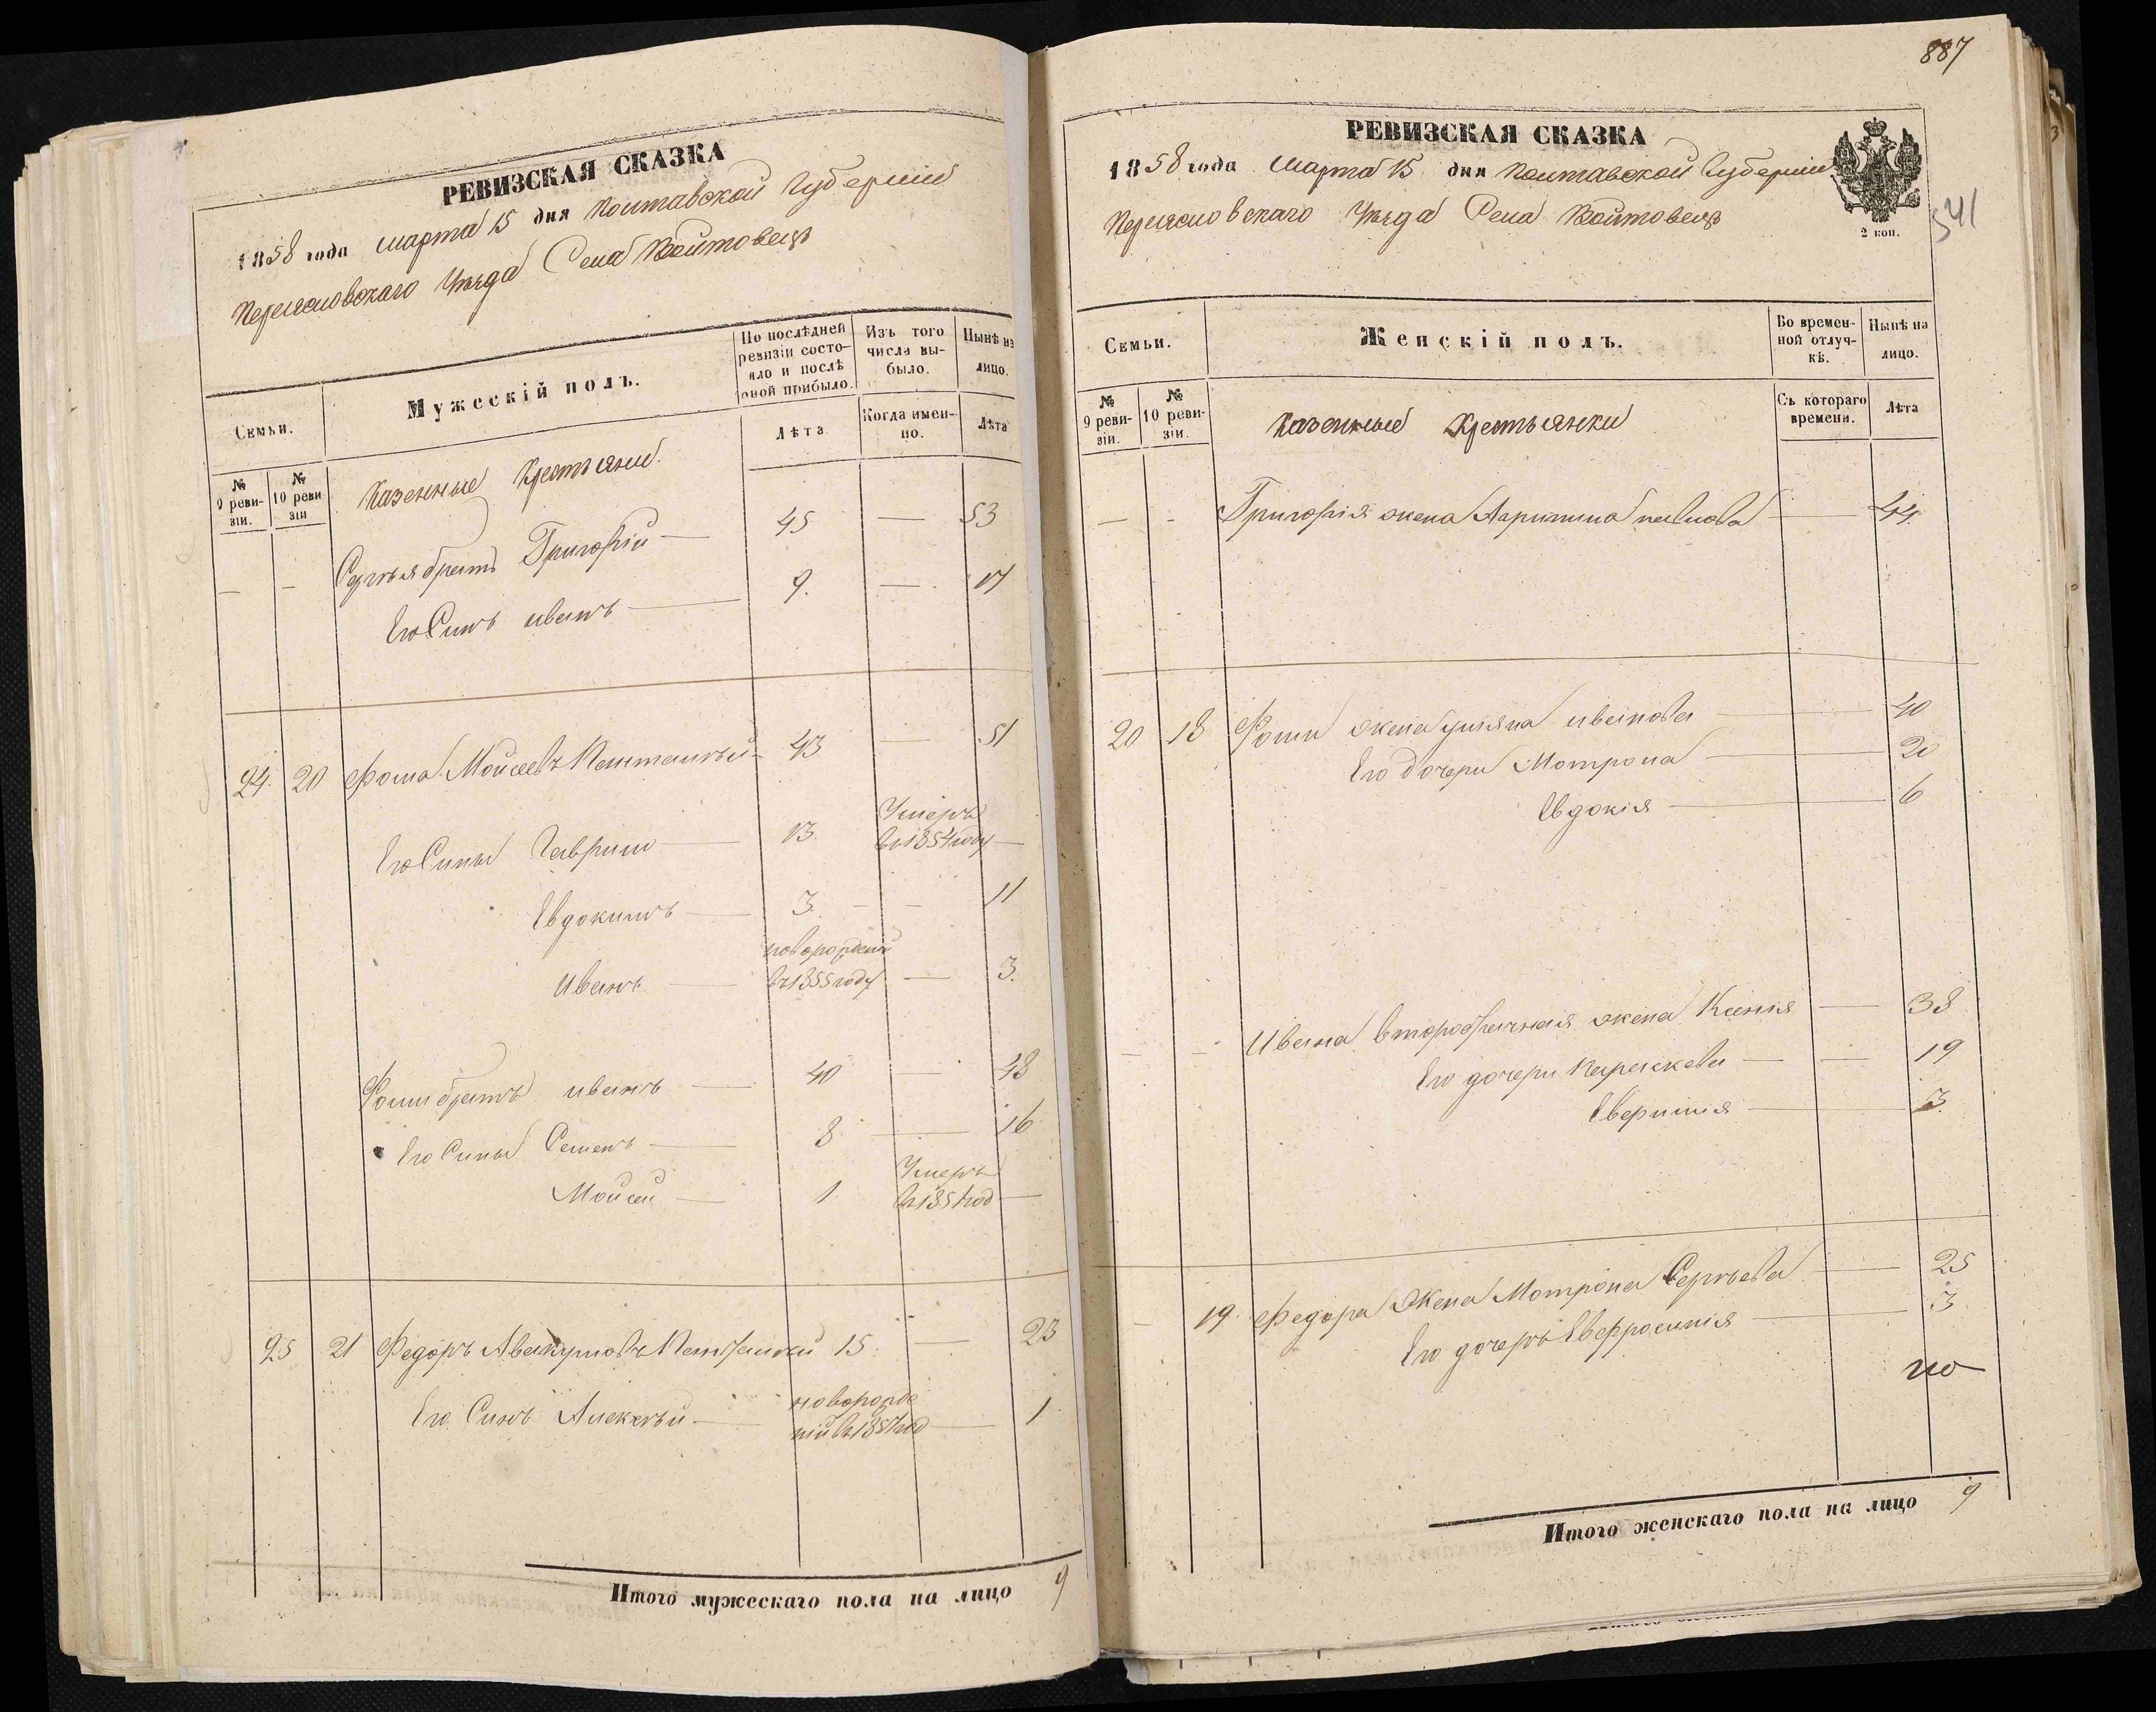 РЕВИЗСКАЯ СКАЗКА
1858 года марта 15 дня Полтавской Губерніи
Переяславскаго Уѣзда Села Войтовецъ
Семьи.
Мужескій полъ.
По послѣдней ревизіи состояло и послѣ оной прибыло.
Изъ того числа выбыло.
Нынѣ на лицо.
№ 9 ревизіи.
№ 10 ревизіи
Казенные Крестьяни.
Лѣта
Когда именно.
Лѣта
— — брать Григорій — 45 — 53
Его Синъ иванъ — 9. — 17
24. 20 Фома Мойсеевъ — 43 — 51
Его Сины Гаврило — 13. Умеръ въ 1854 году —
Евдокимъ — 3. — — 11
Иванъ — новорожденій въ 1855 году — 3.
Фоми братъ иванъ — 40 — 48
Его Сины Семенъ — 8. — 16
Мойсей — 1 Умеръ въ 1854 год —
25 21 Федоръ Авакумовъ 15. — 23
Его Синъ Алексѣй — новорожденій въ 1857 год — 1
Итого мужескаго пола на лицо 9
887
РЕВИЗСКАЯ СКАЗКА
1858 года марта 15 дня Полтавской Губерніи
Переяславскаго Уѣзда Села Войтовецъ
2 коп.
541
Семьи.
Женскій полъ.
Во временной отлучкѣ.
Нынѣ на лицо.
№ 9 ревизіи.
№ 10 ревизіи.
Казенные Крестьянки
Съ котораго времени.
Лѣта
— - Григорія жена павлова — 44.
20 18 Фоми жена уліяна иванова — 40
Его дочери Мотрона — 20
Евдокія — 6
— - Ивана второбрачная жена Ксенія — 38
Его дочери Параскева — — 19
— 3.
— 19. Федора Жена Мотрона Сергѣева — 25
Его дочеръ Евфросинія — 3
Итого женскаго пола на лицо 9